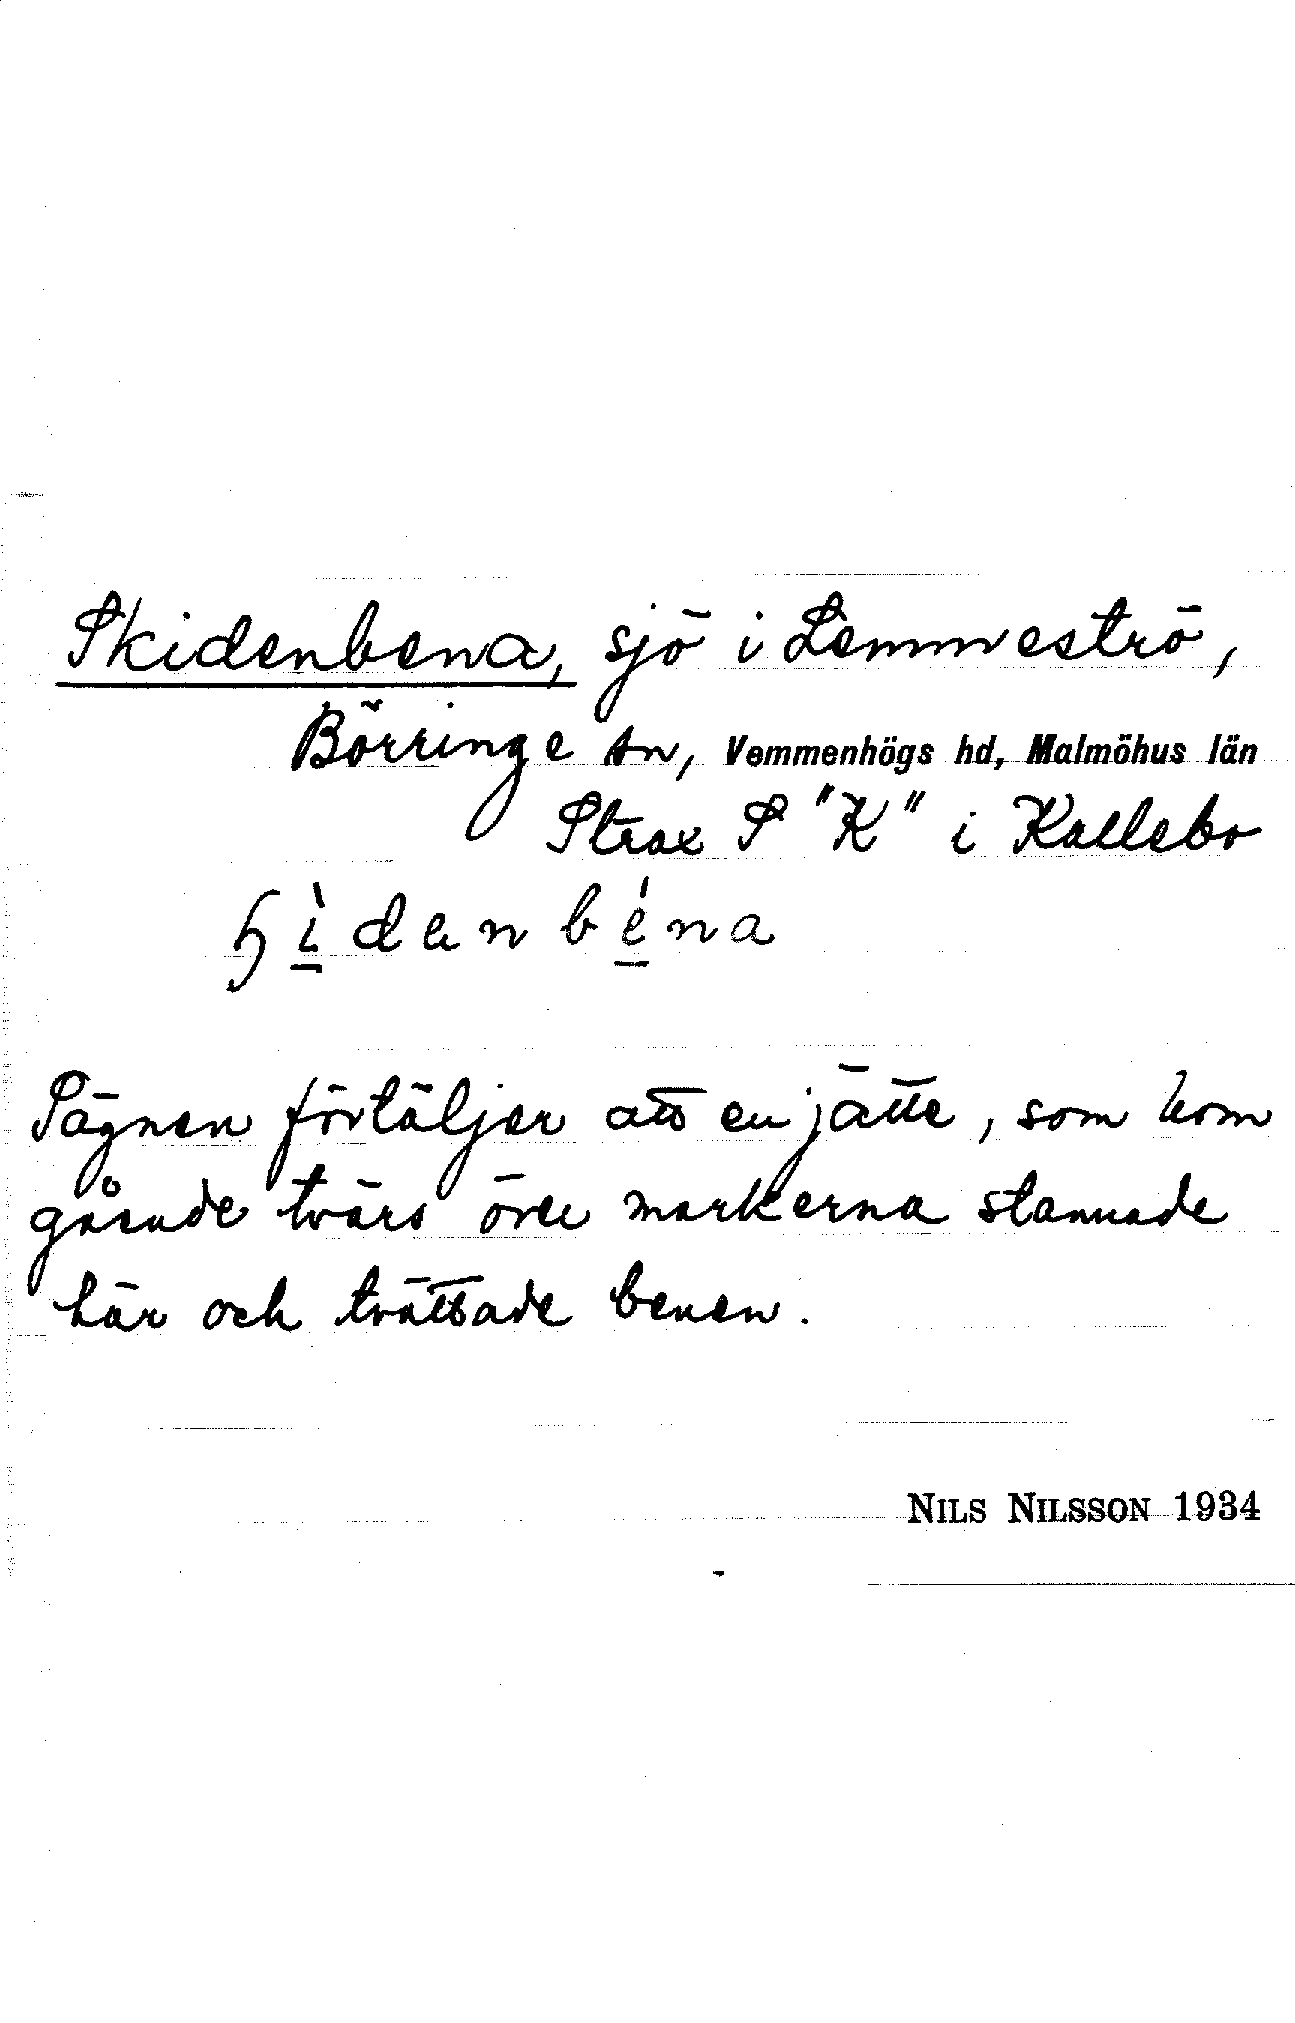 Skidenbena, sjö i Lemmeströ,
Börringe sn, Vemmenhögs hd, Malmöhus län
Strax S "K" i Kallebo
ɧìdenbéna
Sägnen förtäljer att en jätte, som kom
gående tvärs över markerna stannade
här och tvättade benen.
NILS NILSSON 1934